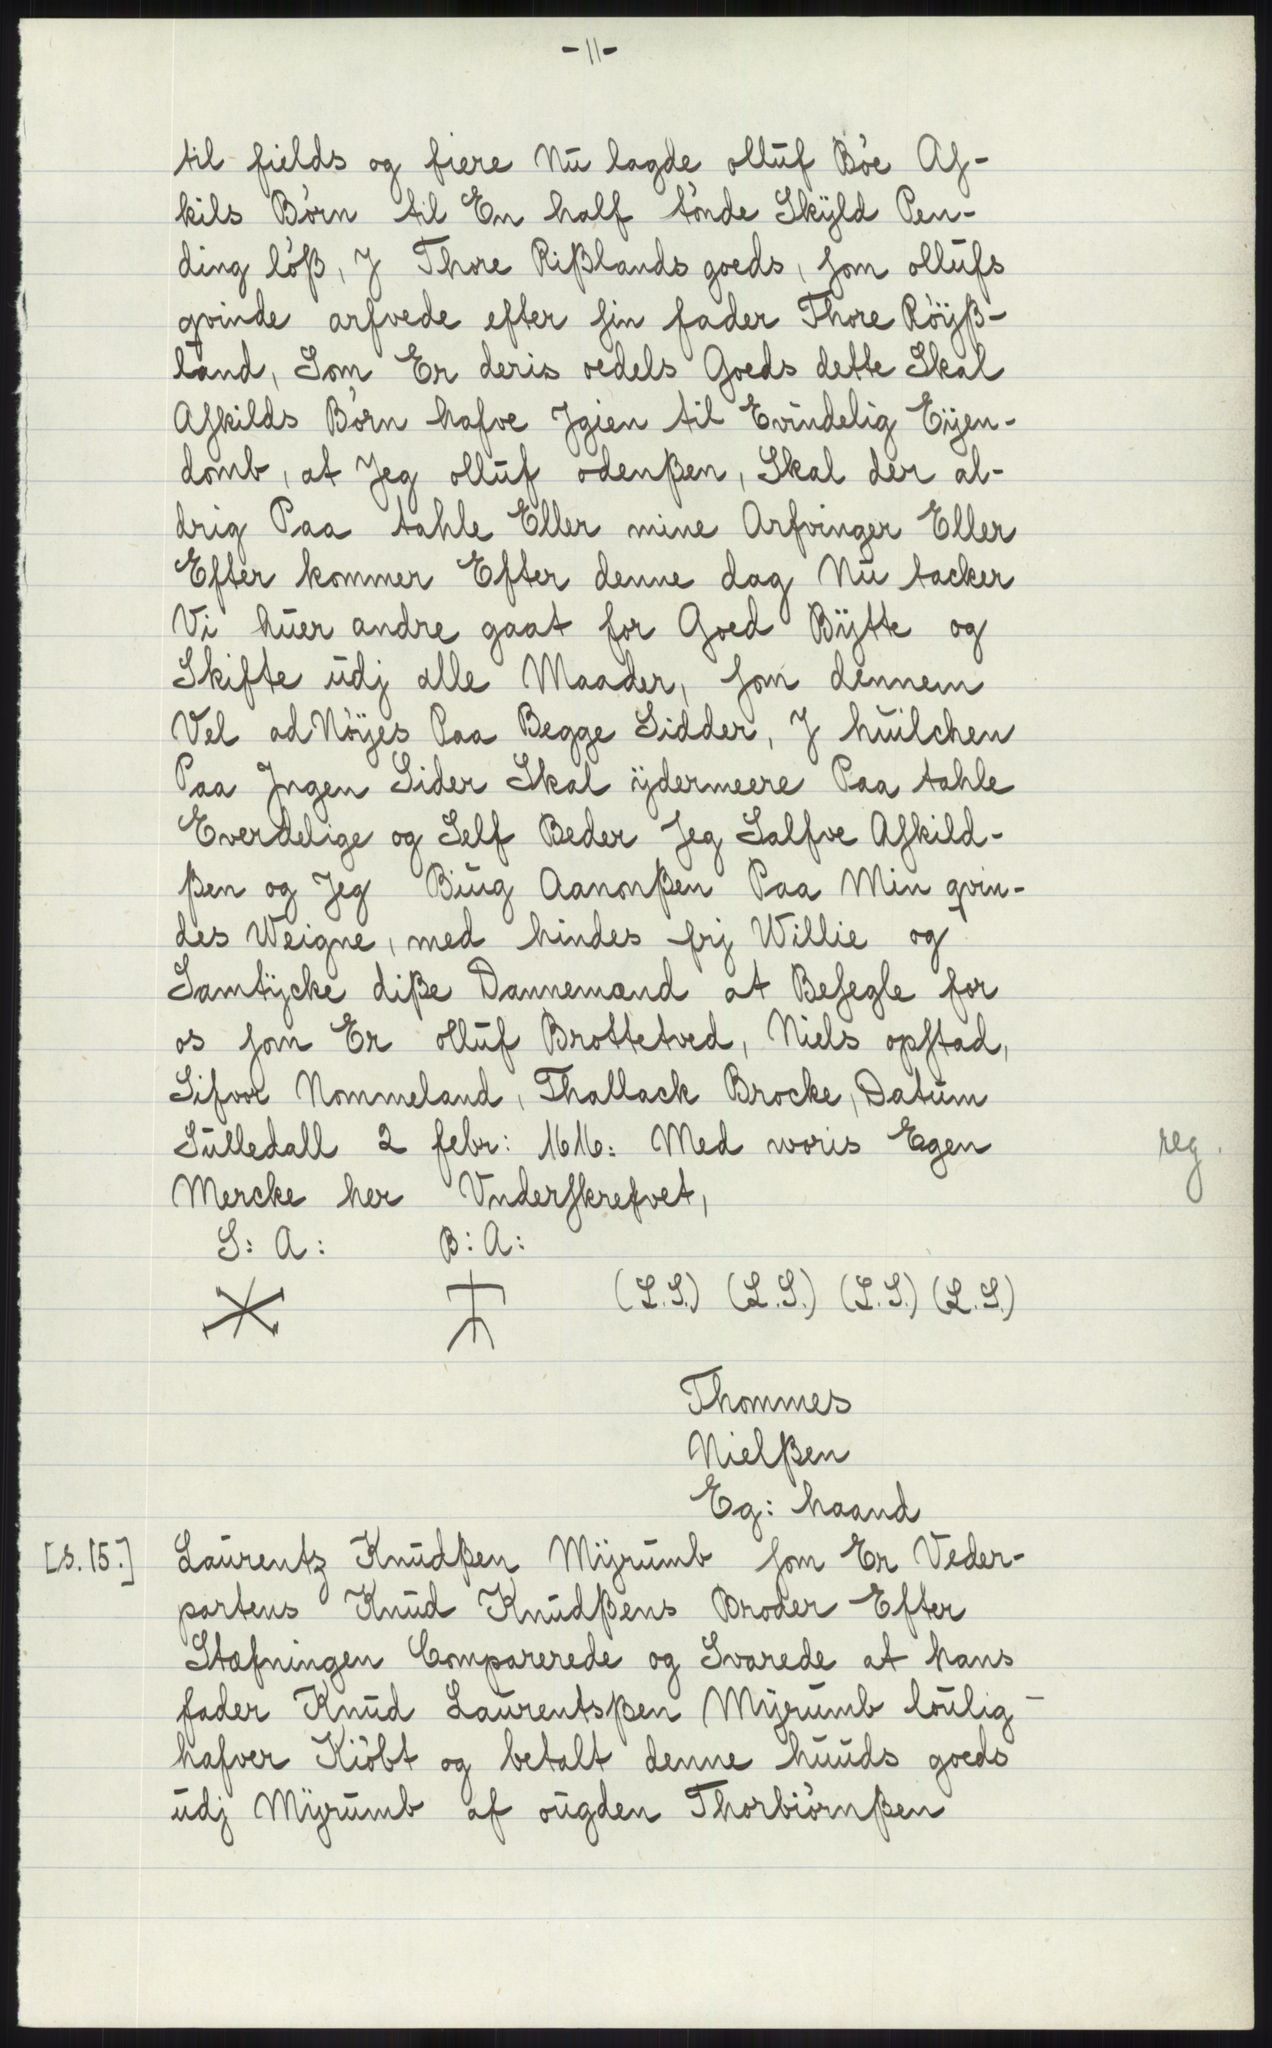 -11-
til fields og fiere Nu lagde olluf Böe As-
kils Börn til En half tönde Skÿld Pen-
ding löß, J Thore Rißlands goeds, som ollufs
qvinde arfvede efter sin fader Thore Röÿß-
land, Som Er deris oedels Goeds dette Skal
Askilds Börn hafve Jgien til Evindelig Eÿen-
domb, at Jeg olluf odenßen, Skal der al-
drig Paa tahle Eller mine Arfvinger Eller
Efter kommer Efter denne dag Nu tacker
Vi huer andre gaat for Goed Bÿtte og
Skifte udj alle Maader, som dennem
Vel ad Nöyes Paa Begge Sidder, J huilchen
Paa Jngen Sider Skal ÿdermeere Paa tahle
Everdelige og Self Beder Jeg Salfve Askild-
ßen og Jeg Biug Aanonßen Paa Min qvin-
des Weigne, med hindes frj Willie og
Samtÿcke diße Dannemænd at Besegle for
os som Er olluf Brottetved, Niels opstad,
Sifvor Nommeland, Thallack Brocke, Datum
Sulledall 2 febr: 1616: Med woris Egen
reg.
Mercke her Vnderskrefvet,
S: A: B: A:
(L.S.) (L.S.) (L.S.) (L.S.)
Thommes
Nielßen
Eg: haand
[s. 15.] Laurentz Knudßen Mÿrumb som Er Veder-
partens Knud Knudßens Broder Efter
Stæfningen Comparerede og Svarede at hans
fader Knud Laurentsßen Mÿrumb loulig
hafver Kiöbt og betalt denne huuds goeds
udj Mÿrumb af ougden Thorbiörnßen